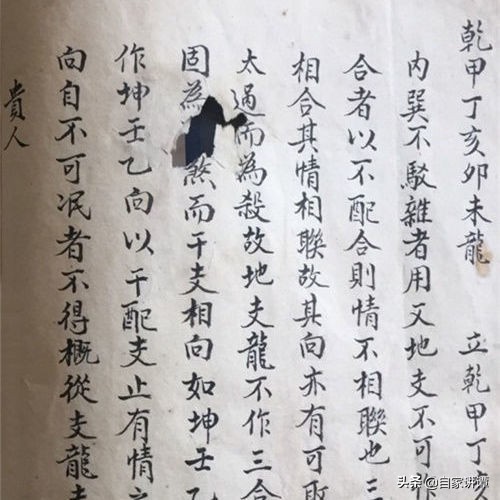 乾甲丁亥卯未龍　立乾甲丁
内巽不駁雜者用又地支不可
合者以不配合則情不相聯也三
相合其情相聯故其向亦有可取
太過而為殺故地支龍不作三合
固為煞而干支相向如坤壬乙
作坤壬乙向以干配支止有情
向自不可泯者不得概從支龍
貴人
头条 @自家讲